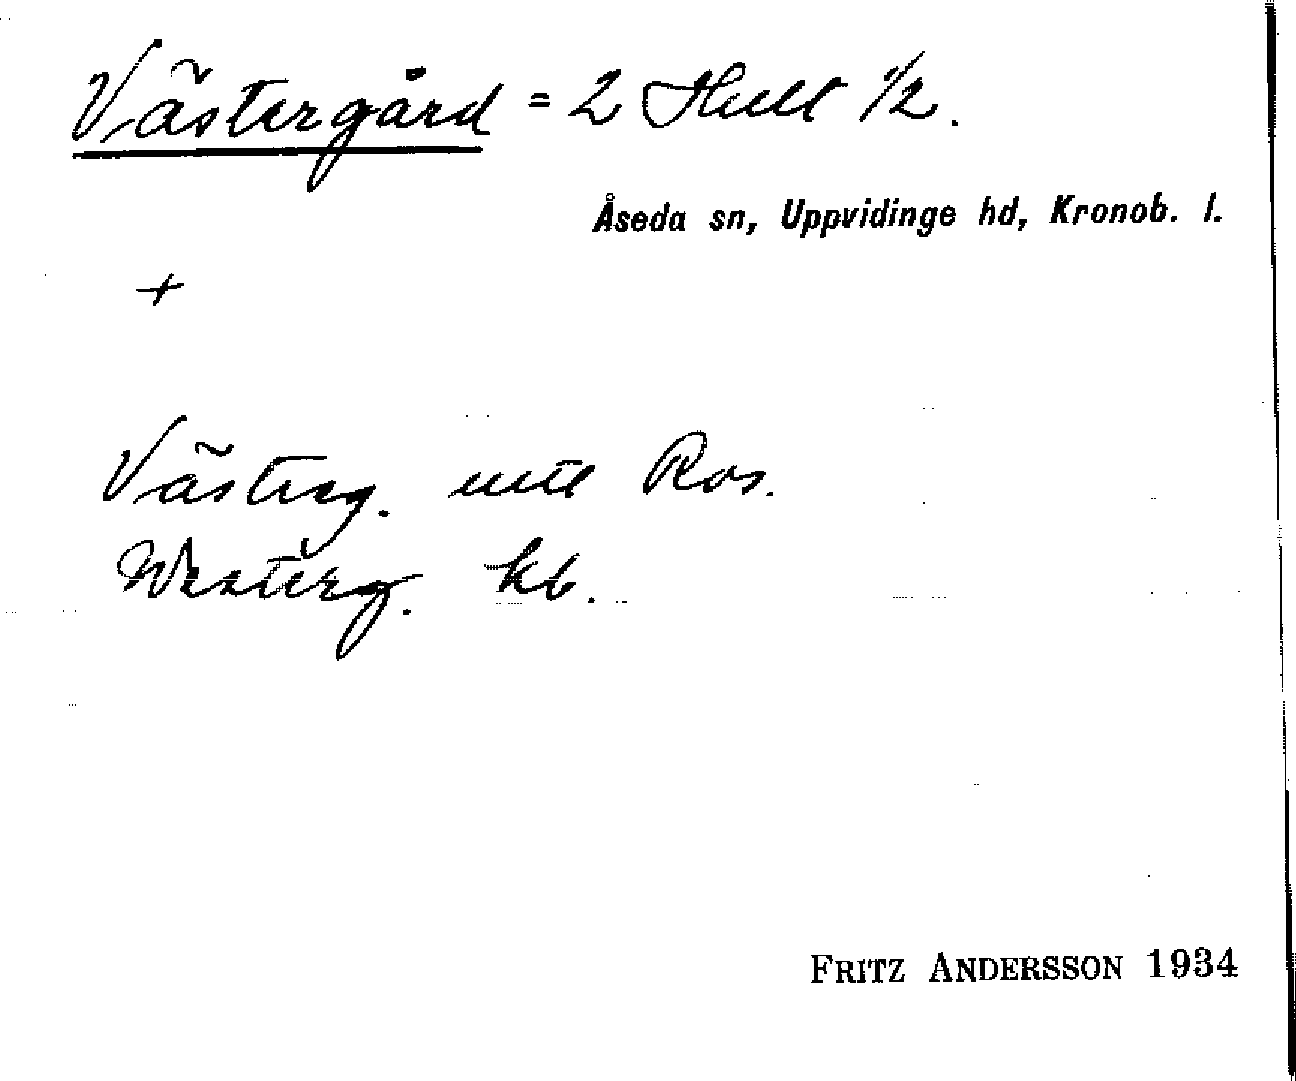 Västergård = 2 Hult 1/2.
Åseda sn, Uppvidinge hd, Kronob. l.
+
Västerg. utt Ros.
Westerg. kb.
FRITZ ANDERSSON 1934